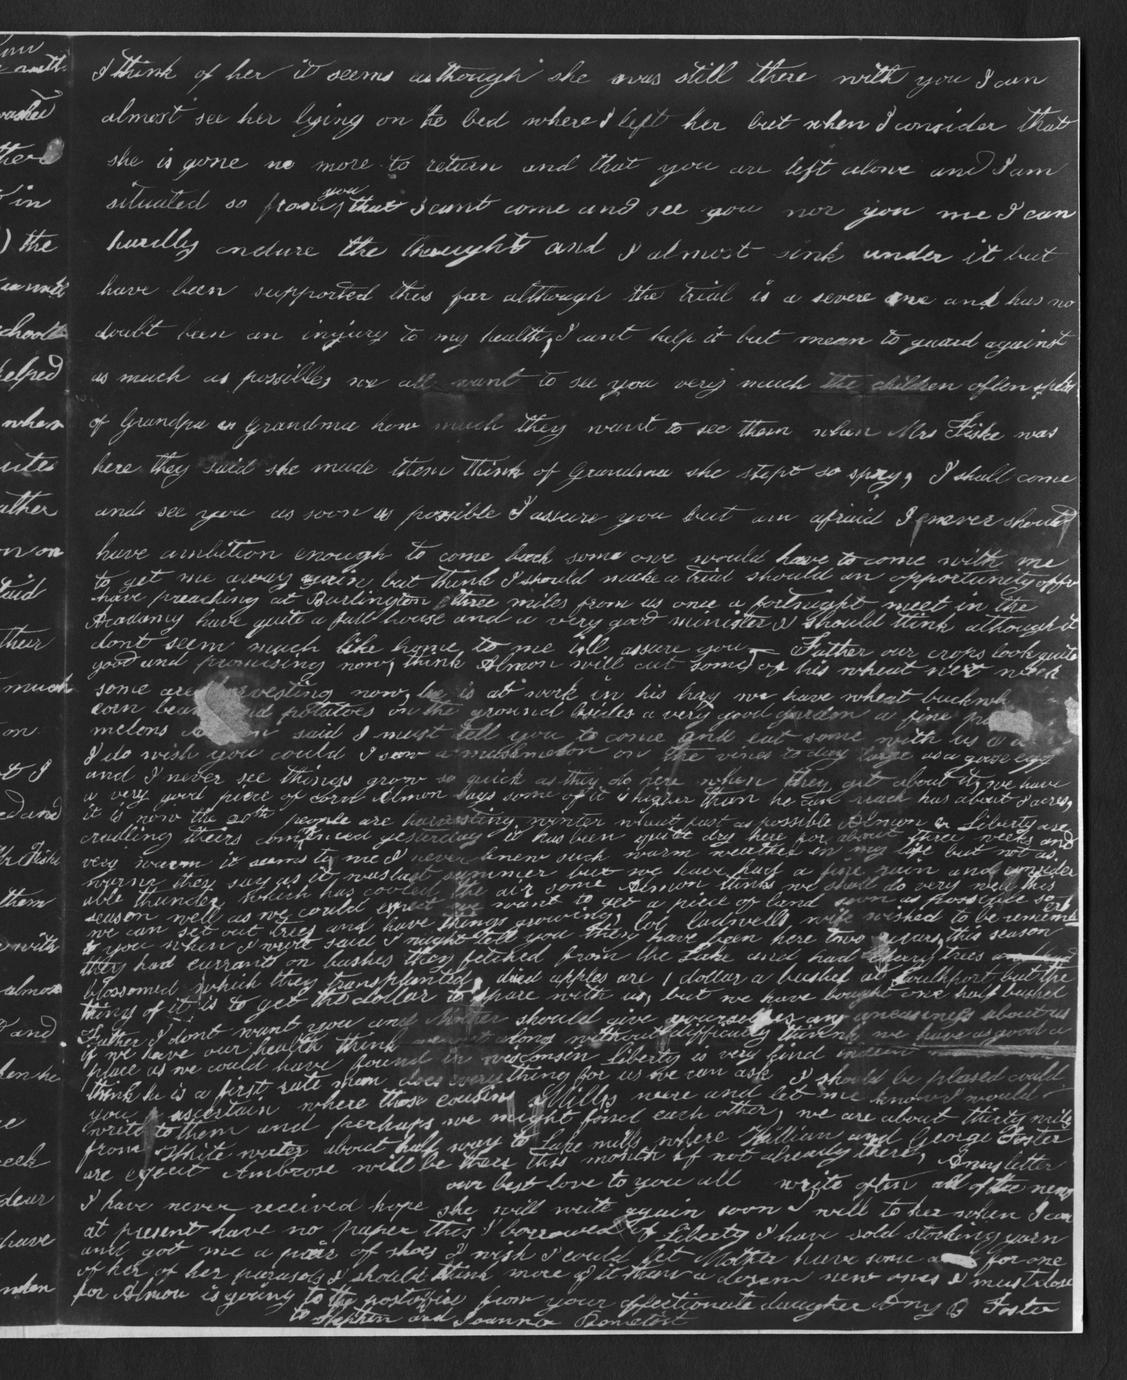 I think of her it seems as though she was still there with you I can
almost see her lying on the bed where I left her but when I consider that
she is gone no more to return and that you are left alone and I am
situated so from you that I cant come and see you nor you me I can
hardly endure the thought and I almost sink under it but
have been supported thus far although the trial is a severe one and has no
doubt been an injury to my health, I cant help it but mean to guard against
as much as possible, we all want to see you very much the children often
of Grandpa Grandma how much they want to see them when Mrs Fiske was
here they said she made them think of Grandma she stept so spry, I shall come
and see you as soon as possible I assure you but am afraid I never should
have ambition enough to come back some one would have to come with me
to get me away again but think I should make a trial should an opportunity
have preaching at Burlington three miles from us once a fortnight meet in the
Academy have quite a full house and a very good minister I should think although it
dont seem much like home to me Ill assure you Father our crops look quite
good and promising now, think Almon will cut some of his wheat next week
some are harvesting now, he is at work in his hay we have wheat
corn and potatoes on the ground besides a very good garden a fine
melons said I must tell you to come and eat some with us
I do wish you could I saw a muskmelon on the vines to day large as a goose egg
and I never see things grow so quick as they do here when they get about it, we have
a very good piece of corn Almon says some of it is higher than he can reach has about acres,
it is now the 20th people are harvesting winter wheat fast as possible Almon & Liberty are
cradling theirs comenced yesterday it has been quite dry here for about three weeks and
very warm it seems to me I never knew such warm weather in my life but not as
warm they say as it was last summer but we have had a fine rain and
able thunder, which has cooled the air some Almon thinks we shall do very well this
season well as we could expect we want to get a piece of land soon as possible so
we can set out trees and have things growing, Ladwells wife wished to be
to you when I wrote said I might tell you they have been here two years, this season
they had currants on bushes they fetched from the Lake and had trees
blossomed which they transplanted, dried apples are 1 dollar a bushel at Southport but the
thing of it is to get the dollar to spare with us, but we have bought one half bushel
Father I dont want you and Mother should give yourselves any uneasiness about us
if we have our health think along without difficulty think we have as good a
place as we could have found in Wisconsen Liberty is very kind indeed
think he is a first rate man does every thing for us we can ask I should be pleased could
you ascertain where those cousins Mills were and let me know I would
write to them and perhaps we might find each other, we are about thirty miles
from White water about half way to Lake mills where William and George Foster
are expect Ambrose will be there this month if not already there, letter
our best love to you all write often all of the news
I have never received hope she will write again soon I will to her when I can
at present have no paper this I borrowed of Liberty I have sold stocking yarn
and got me a pair of shoes I wish I could let Mother have some for one
of her of her parasols I should think more of it than a dozen new ones I must close
for Almon is going to the postoffice from your affectionate daughter Amy B Foster
to Stephen and Joanna